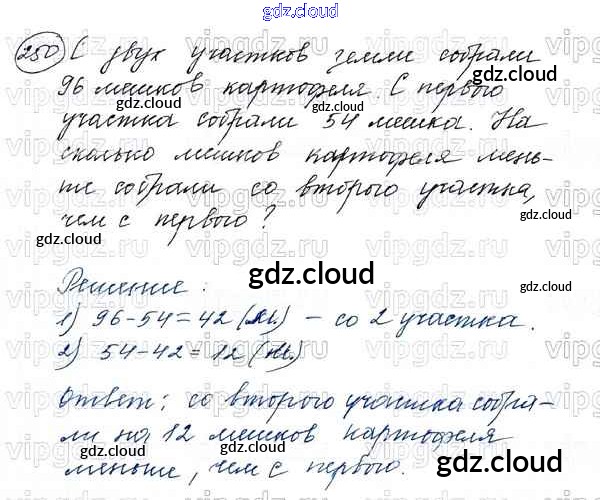 gdz.cloud
250 С двух участков земли собрали
96 мешков картофеля. С первого
участка собрали 54 мешка. На
сколько мешков картофеля мень-
ше собрали со второго участка,
чем с первого?
Решение.
1) 96-54=42 (м.) - со 2 участка.
2) 54-42=12 (м.)
Ответ: со второго участка собра-
ли на 12 мешков картофеля
меньше, чем с первого.
gdz.cloud
gdz.cloud
gdz.cloud
gdz.cloud
gdz.cloud
gdz.cloud
gdz.cloud
gdz.cloud
gdz.cloud
gdz.cloud
vipgdz.ru